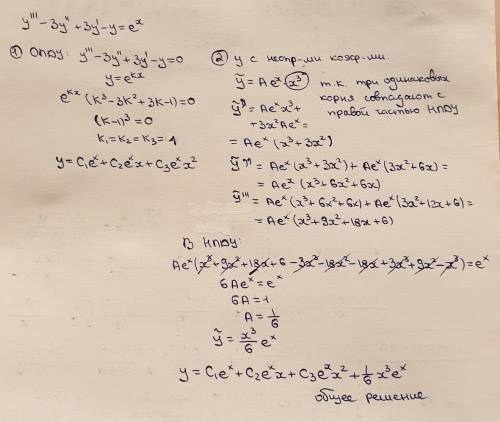 y''' - 3y'' + 3y' - y = eˣ
① ОЛДУ: y''' - 3y'' + 3y' - y = 0
y = eᵏˣ
eᵏˣ (k³ - 3k² + 3k - 1) = 0
(k - 1)³ = 0
k₁ = k₂ = k₃ = 1
y = C₁eˣ + C₂eˣx + C₃eˣx²
② y с неопр-ми коэф-ми.
ỹ = Aeˣ · x³ т.к. три одинаковых корня совпадают с правой частью НЛДУ
ỹ' = Aeˣx³ +
+ 3x²Aeˣ =
= Aeˣ (x³ + 3x²)
ỹ'' = Aeˣ (x³ + 3x²) + Aeˣ (3x² + 6x) =
= Aeˣ (x³ + 6x² + 6x)
ỹ''' = Aeˣ (x³ + 6x² + 6x) + Aeˣ (3x² + 12x + 6) =
= Aeˣ (x³ + 9x² + 18x + 6)
В НЛДУ:
Aeˣ (x³ + 9x² + 18x + 6 - 3x³ - 18x² - 18x + 3x³ + 9x² - x³) = eˣ
6Aeˣ = eˣ
6A = 1
A = 1/6
ỹ = x³/6 eˣ
y = C₁eˣ + C₂eˣx + C₃eˣx² + 1/6 x³eˣ
общее решение